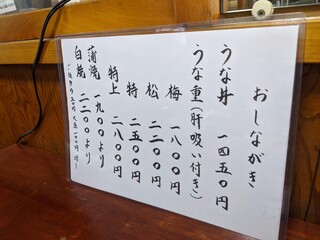 おしながき
うな丼 一四五〇円
うな重(肝吸い付き)
梅 一八〇〇円
松 二二〇〇円
特 二五〇〇円
特上 二八〇〇円
蒲焼 一九〇〇より
白焼 二二〇〇より